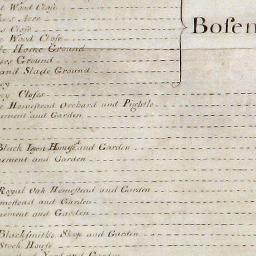 Wood Close
Acre
Close
Wood Close
Home Ground
Ground
and Slade Ground
Closes
Homestead Orchard and Pightle
ement and Garden
Black Lion Homest.d and Garden
ement and Garden
Royal Oak Homestead and Garden
mestead and Garden
ement and Garden
Blacksmiths Shop and Garden
Stock House
Yard and Garden
Bosen